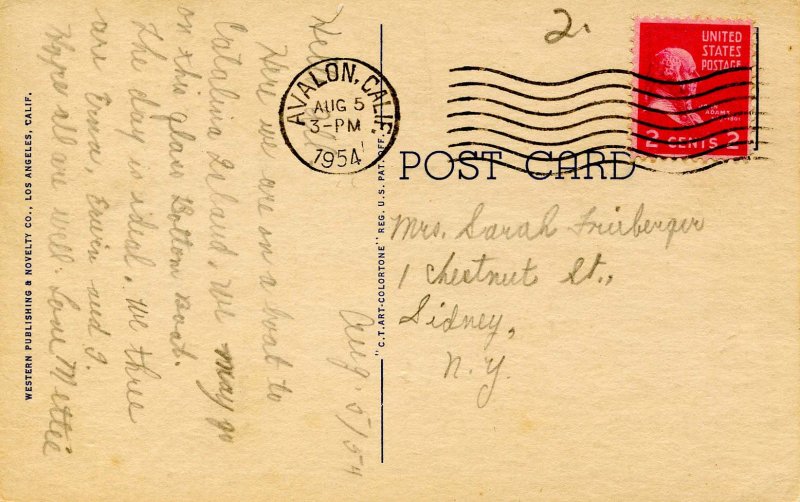 2.
UNITED
STATES
POSTAGE
JOHN
ADAMS
2 CENTS 2
AVALON, CALIF.
AUG 5
3-PM
1954
POST CARD
Mrs. Sarah Frieberger
1 Chestnut St.,
Sidney,
N.Y.
Aug. 5/54
Here we are on a boat to
Catalina Island. We may go
on this glass Bottom Boat.
The day is ideal. We three
are Erma, Erwin and I.
Hope all is well. Love Mettie
"C.T. ART-COLORTONE" REG. U.S. PAT. OFF.
WESTERN PUBLISHING & NOVELTY CO., LOS ANGELES, CALIF.